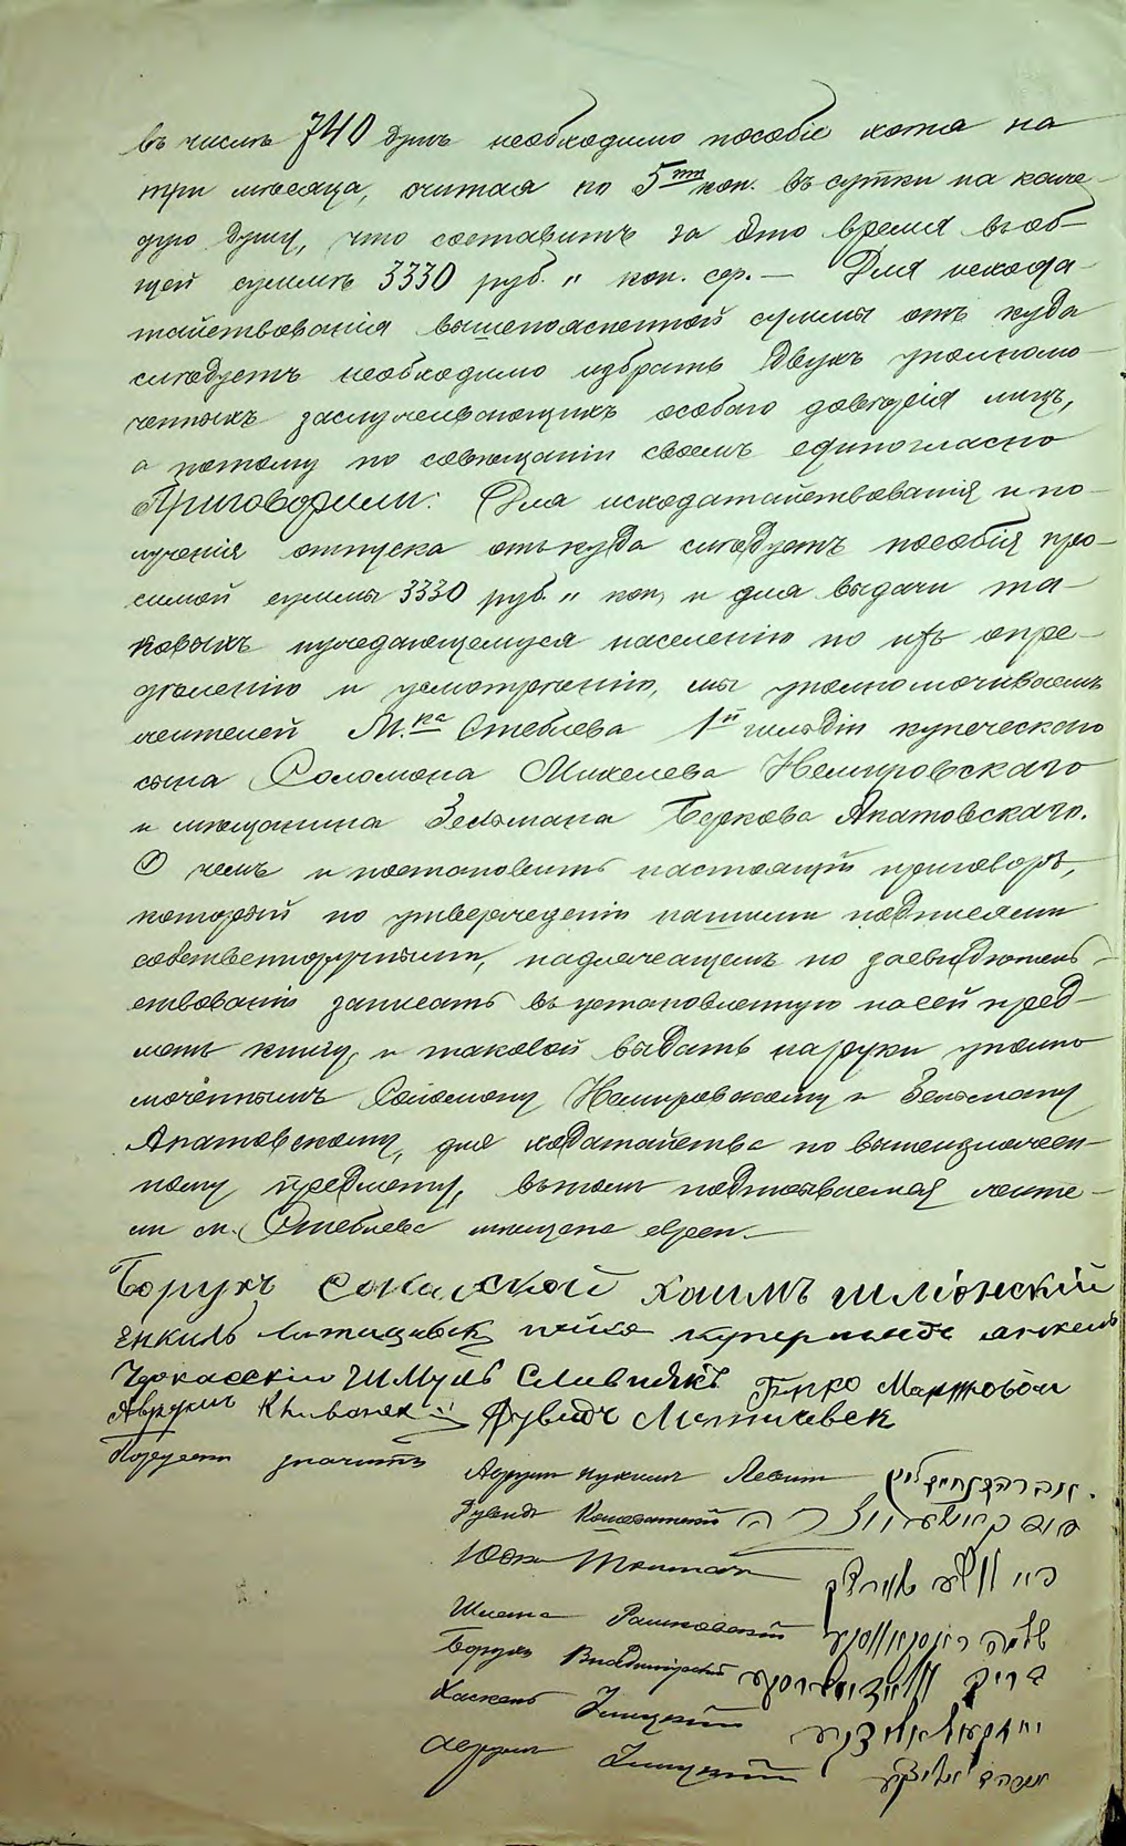 въ числѣ 740 душъ необходимо пособіе хотя на
три мѣсяца, считая по 5ти коп. въ сутки на каж-
дую душу, что составитъ за это время въ об-
щей суммѣ 3330 руб. „ коп. сер. — Для исхода-
тайствованія вышепоясненной суммы отъ куда
слѣдуетъ необходимо избрать двухъ уполномо-
ченныхъ заслуживающихъ особаго довѣрія лицъ,
а потому по совѣщаніи своемъ единогласно
Приговорили: Для исходатайствованія и по-
лученія отпуска отъ куда слѣдуетъ пособія про-
симой суммы 3330 руб. „ коп, и для выдачи та-
ковыхъ нуждающемуся населенію по ихъ опре-
дѣленію и усмотрѣнію, мы уполномочиваемъ
жителей М.ка Стеблева 1й гильдіи купеческаго
сына Соломона Михелева Немировскаго
и мѣщанина Зельмана Беркова Апатовскаго.
О чемъ и постановить настоящій приговоръ,
который по утвержденіи нашими подписями
собственноручными, надлежащемъ по засвидѣтель-
ствованіи записать въ установленную на сей пред-
метъ книгу, и таковой выдать на руки уполно
моченнымъ Соломону Немировскому и Зельману
Апатовскому, для ходатайства по вышеизложен-
ному предмету, въ томъ подписываемся жите-
ли м. Стеблева мѣщане евреи. —
Борухъ Сокальской Хаимъ Шліонскій
Енкиль купермынъ
Черкасскій Шмуль Сливнякъ Берко
Аврумъ Рувинъ
Аврумъ Левит
Рувинъ
Юдко
Шлема Рашковскій שלמה
Борухъ Владимірскій ברוך
Хаскель
Аврумъ אברהם